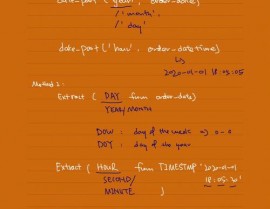 date_part ('year', order_date)
/ 'month',
/ 'day'
date_part ('hour', order_datetime)
2020-01-01 18:05:05
Method 2:
Extract ( DAY from order_date)
YEAR/MONTH
DOW : day of the week => 0-6
DOY : day of the year
Extract ( HOUR from TIMESTMP '2020-01-01
SECOND/ 18:05:20'
MINUTE )